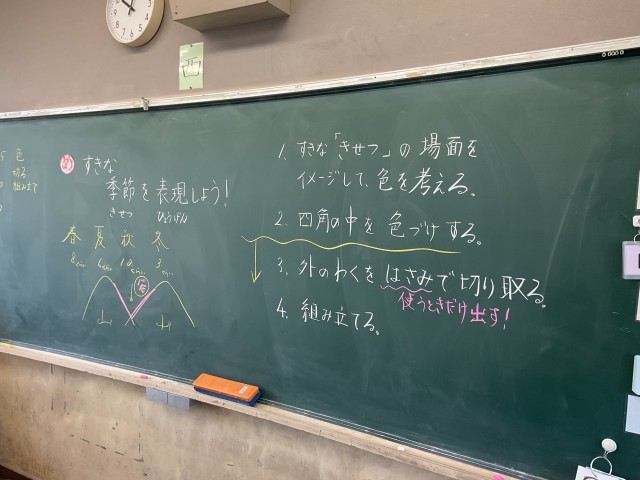 西
色
切る
組み立て
め すきな
季節を表現しよう!
きせつ ひょうげん
春 夏 秋 冬
谷
山 山
1. すきな「きせつ」の場面を
イメージして、色を考える。
2. 四角の中を色づけする。
3. 外のわくをはさみで切り取る。
使うときだけ出す!
4. 組み立てる。